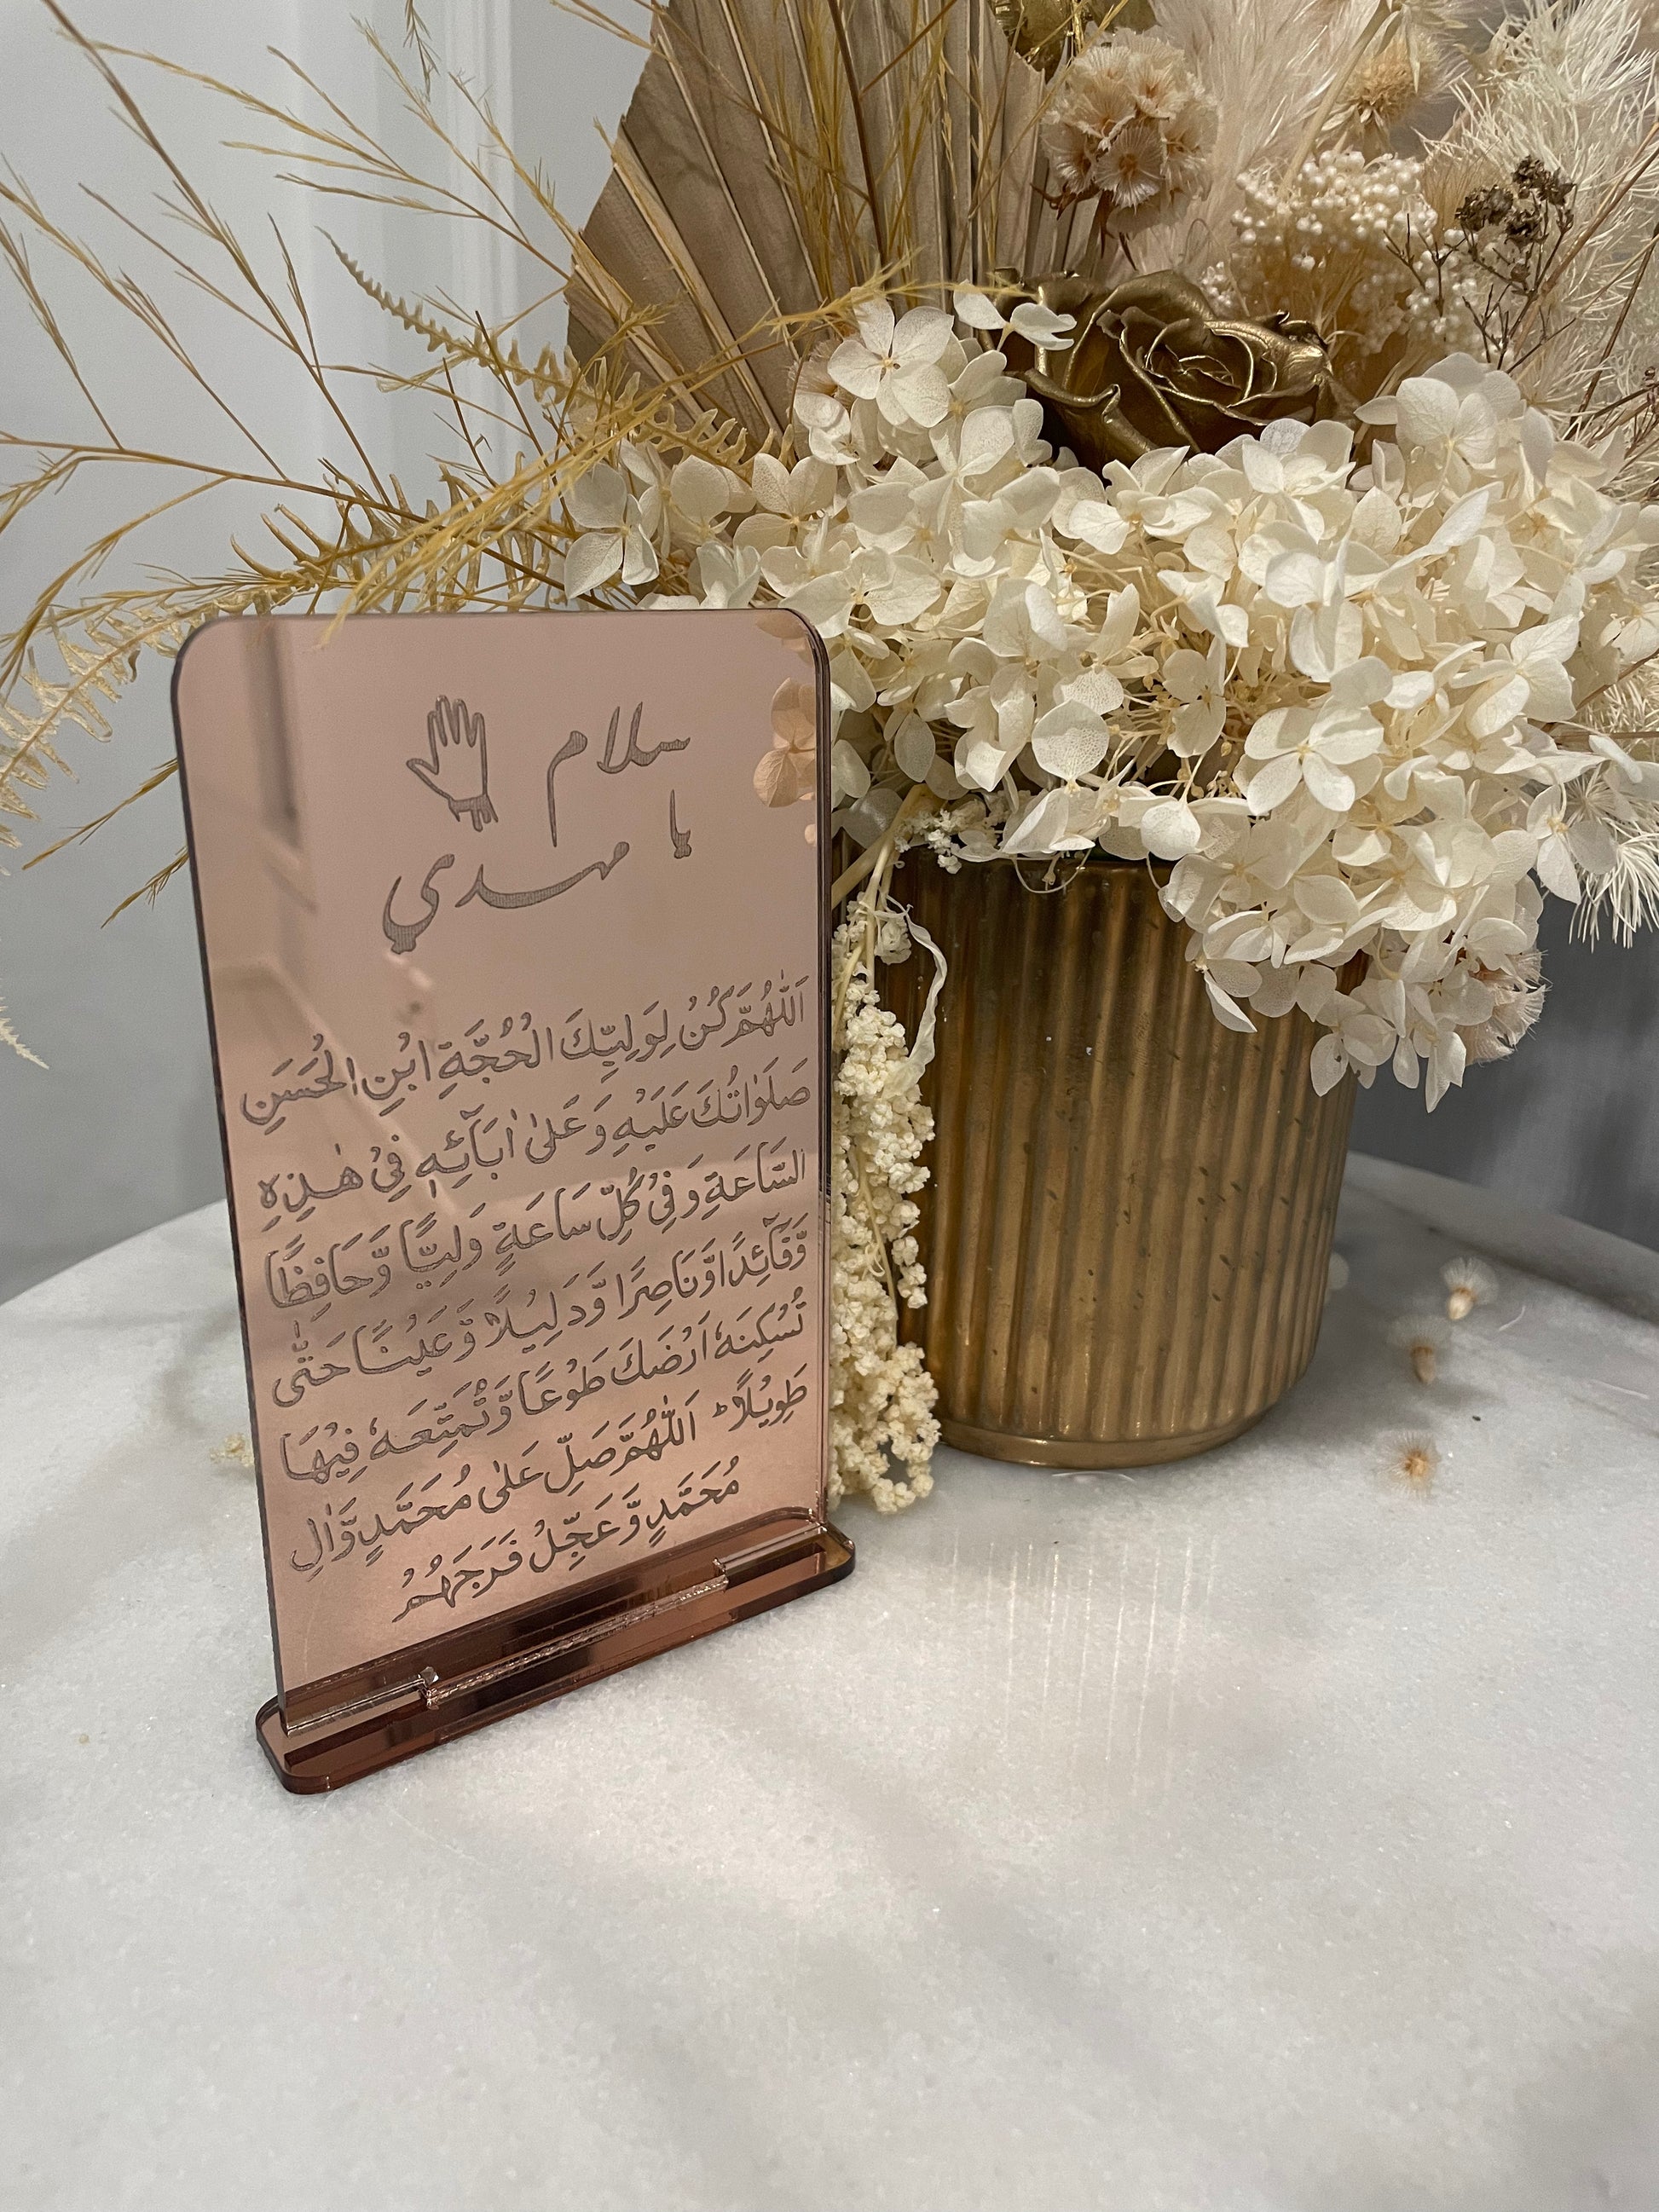 سلام
یا مهدي
اَللّٰهُمَّ كُنْ لِوَلِيِّكَ الْحُجَّةِ ابْنِ الْحَسَنِ
صَلَوٰاتُكَ عَلَيْهِ وَ عَلىٰ اٰبَآئِهٖ فِيْ هٰذِهِ
السَّاعَةِ وَ فِيْ كُلِّ سَاعَةٍ وَلِيًّا وَّحَافِظًا
وَّقَآئِدًا وَّنَاصِرًا وَّدَلِيْلًا وَّعَيْنًا حَتّٰى
تُسْكِنَهٗ اَرْضَكَ طَوْعًا وَّتُمَتِّعَهٗ فِيْهَا
طَوِيْلًا ؕ اَللّٰهُمَّ صَلِّ عَلىٰ مُحَمَّدٍ وَّاٰلِ
مُحَمَّدٍ وَّ عَجِّلْ فَرَجَهُمْ